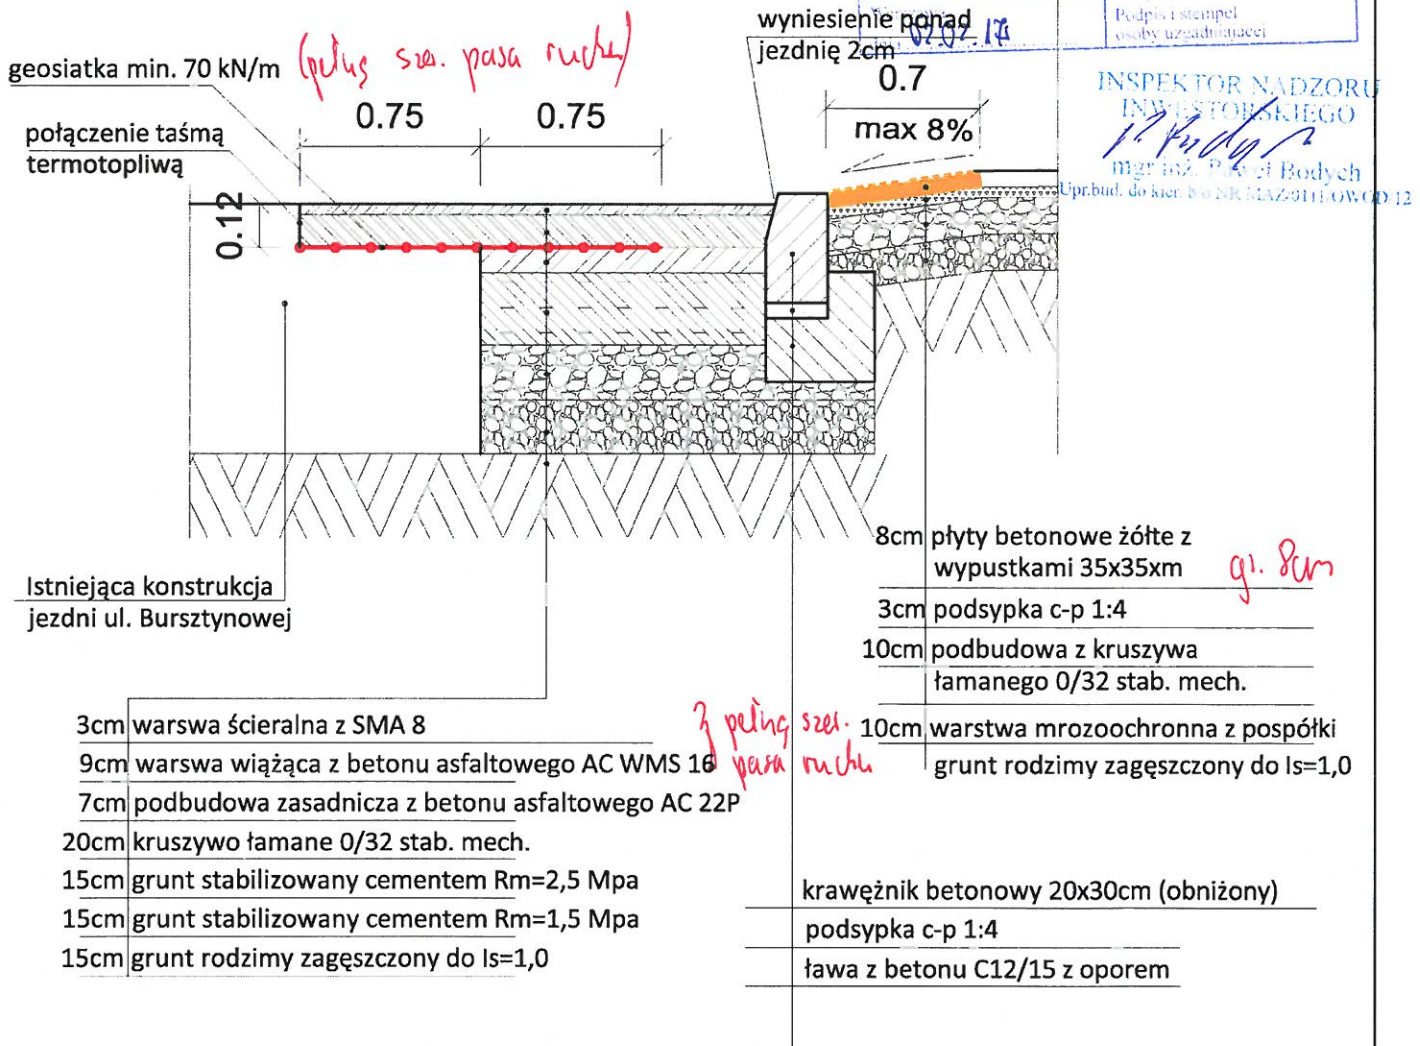 wyniesienie ponad
jezdnię 2cm
02.02.17
Podpis i stempel
osoby uzgadniającej
INSPEKTOR NADZORU
INWESTORSKIEGO
mgr inż. Paweł Bodych
Upr.bud. do kier.
geosiatka min. 70 kN/m
(pełną szer. pasa ruchu)
połączenie taśmą
termotopliwą
0.75
0.75
0.7
max 8%
0.12
Istniejąca konstrukcja
jezdni ul. Bursztynowej
8cm płyty betonowe żółte z
wypustkami 35x35xm
gr. 8cm
3cm podsypka c-p 1:4
10cm podbudowa z kruszywa
łamanego 0/32 stab. mech.
10cm warstwa mrozoochronna z pospółki
grunt rodzimy zagęszczony do Is=1,0
3cm warswa ścieralna z SMA 8
9cm warswa wiążąca z betonu asfaltowego AC WMS 16
pełną szer.
pasa ruchu
7cm podbudowa zasadnicza z betonu asfaltowego AC 22P
20cm kruszywo łamane 0/32 stab. mech.
15cm grunt stabilizowany cementem Rm=2,5 Mpa
15cm grunt stabilizowany cementem Rm=1,5 Mpa
15cm grunt rodzimy zagęszczony do Is=1,0
krawężnik betonowy 20x30cm (obniżony)
podsypka c-p 1:4
ława z betonu C12/15 z oporem